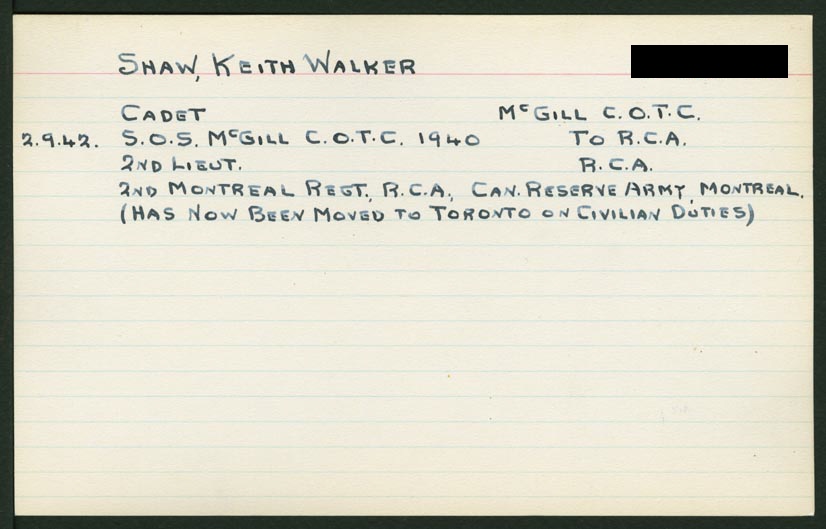 SHAW, KEITH WALKER
CADET McGILL C.O.T.C.
2.9.42. S.O.S. McGILL C.O.T.C. 1940 TO R.C.A.
2ND LIEUT. R.C.A.
2ND MONTREAL REGT., R.C.A., CAN. RESERVE ARMY, MONTREAL.
(HAS NOW BEEN MOVED TO TORONTO ON CIVILIAN DUTIES)